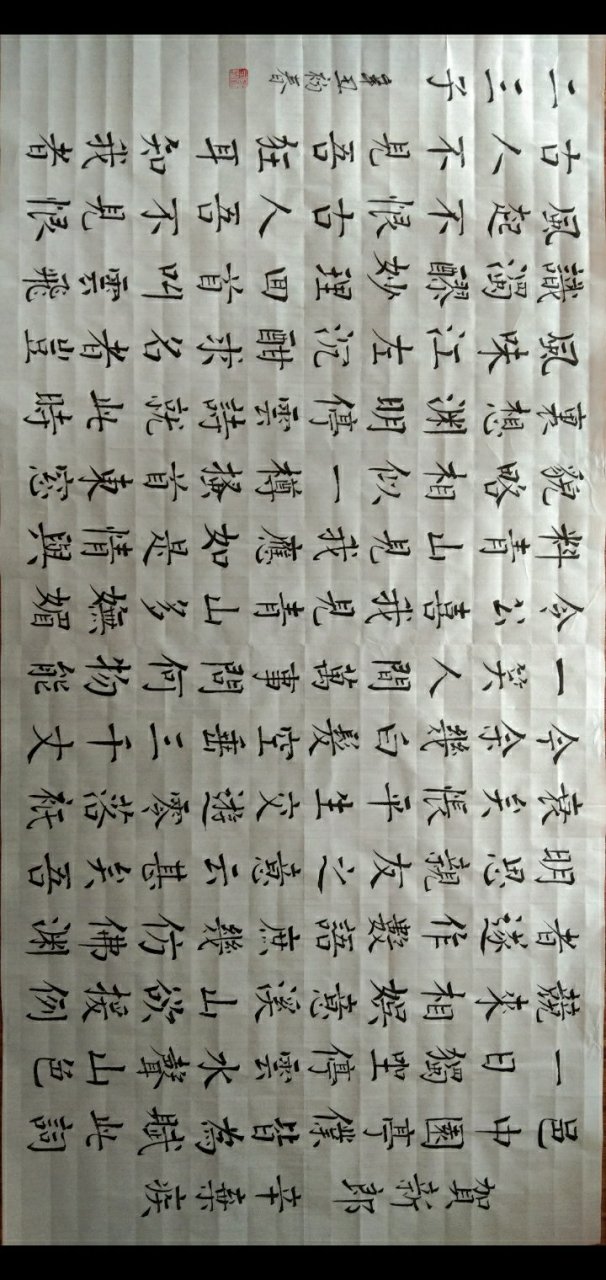 賀新郎 辛棄疾
邑中園亭僕皆為賦此詞
一日獨坐停雲水聲山色
競來相娛意溪山欲援例
者遂作數語庶幾仿佛淵
明思親友之意云甚矣吾
衰矣悵平生交遊零落祇
今余幾白髮空垂三千丈
一笑人間萬事問何物能
令公喜我見青山多嫵媚
料青山見我應如是情與
貌略相似一樽搔首東窗
裏想淵明停雲詩就此時
風味江左沉酣求名者豈
識濁醪妙理回首叫雲飛
風起不恨古人吾不見恨
古人不見吾狂耳知我者
二三子 辛丑初春